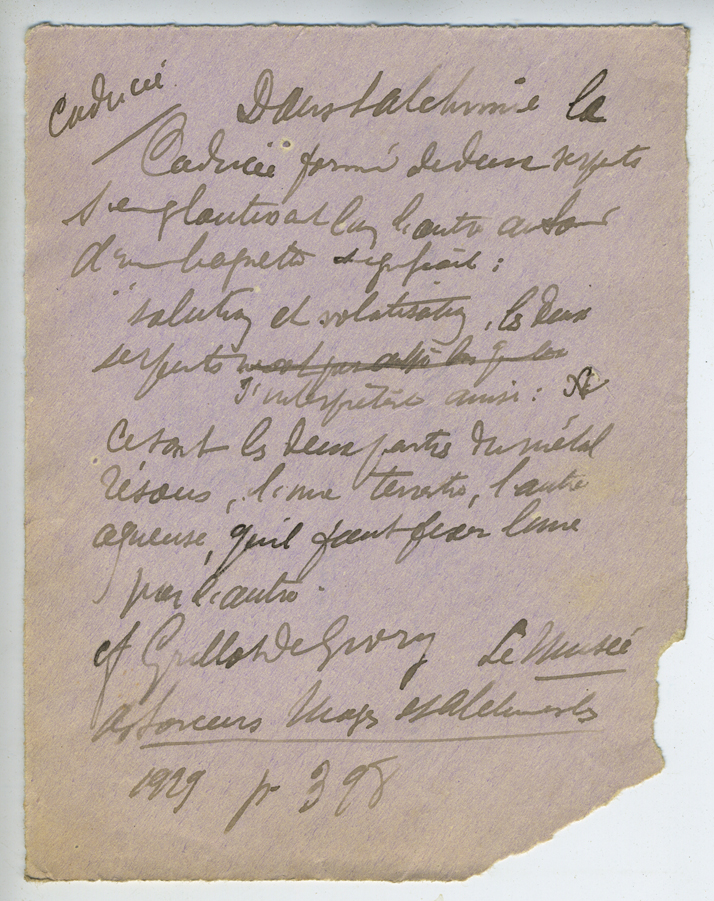 Caducée
Dans l'alchimie la
Caducée formé de deux serpents
s'engloutissant l'un l'autre autour
d'une baguette signifiait :
"solution et volatisation, les deux
serpents
s'interprètent ainsi :
ce sont les deux parties du métal
résous, l'une terrestre, l'autre
aqueuse, qu'il faut fixer l'une
par l'autre.
cf Grillot de Givry Le Musée
des Sorciers Mages et Alchimistes
1929 p 398